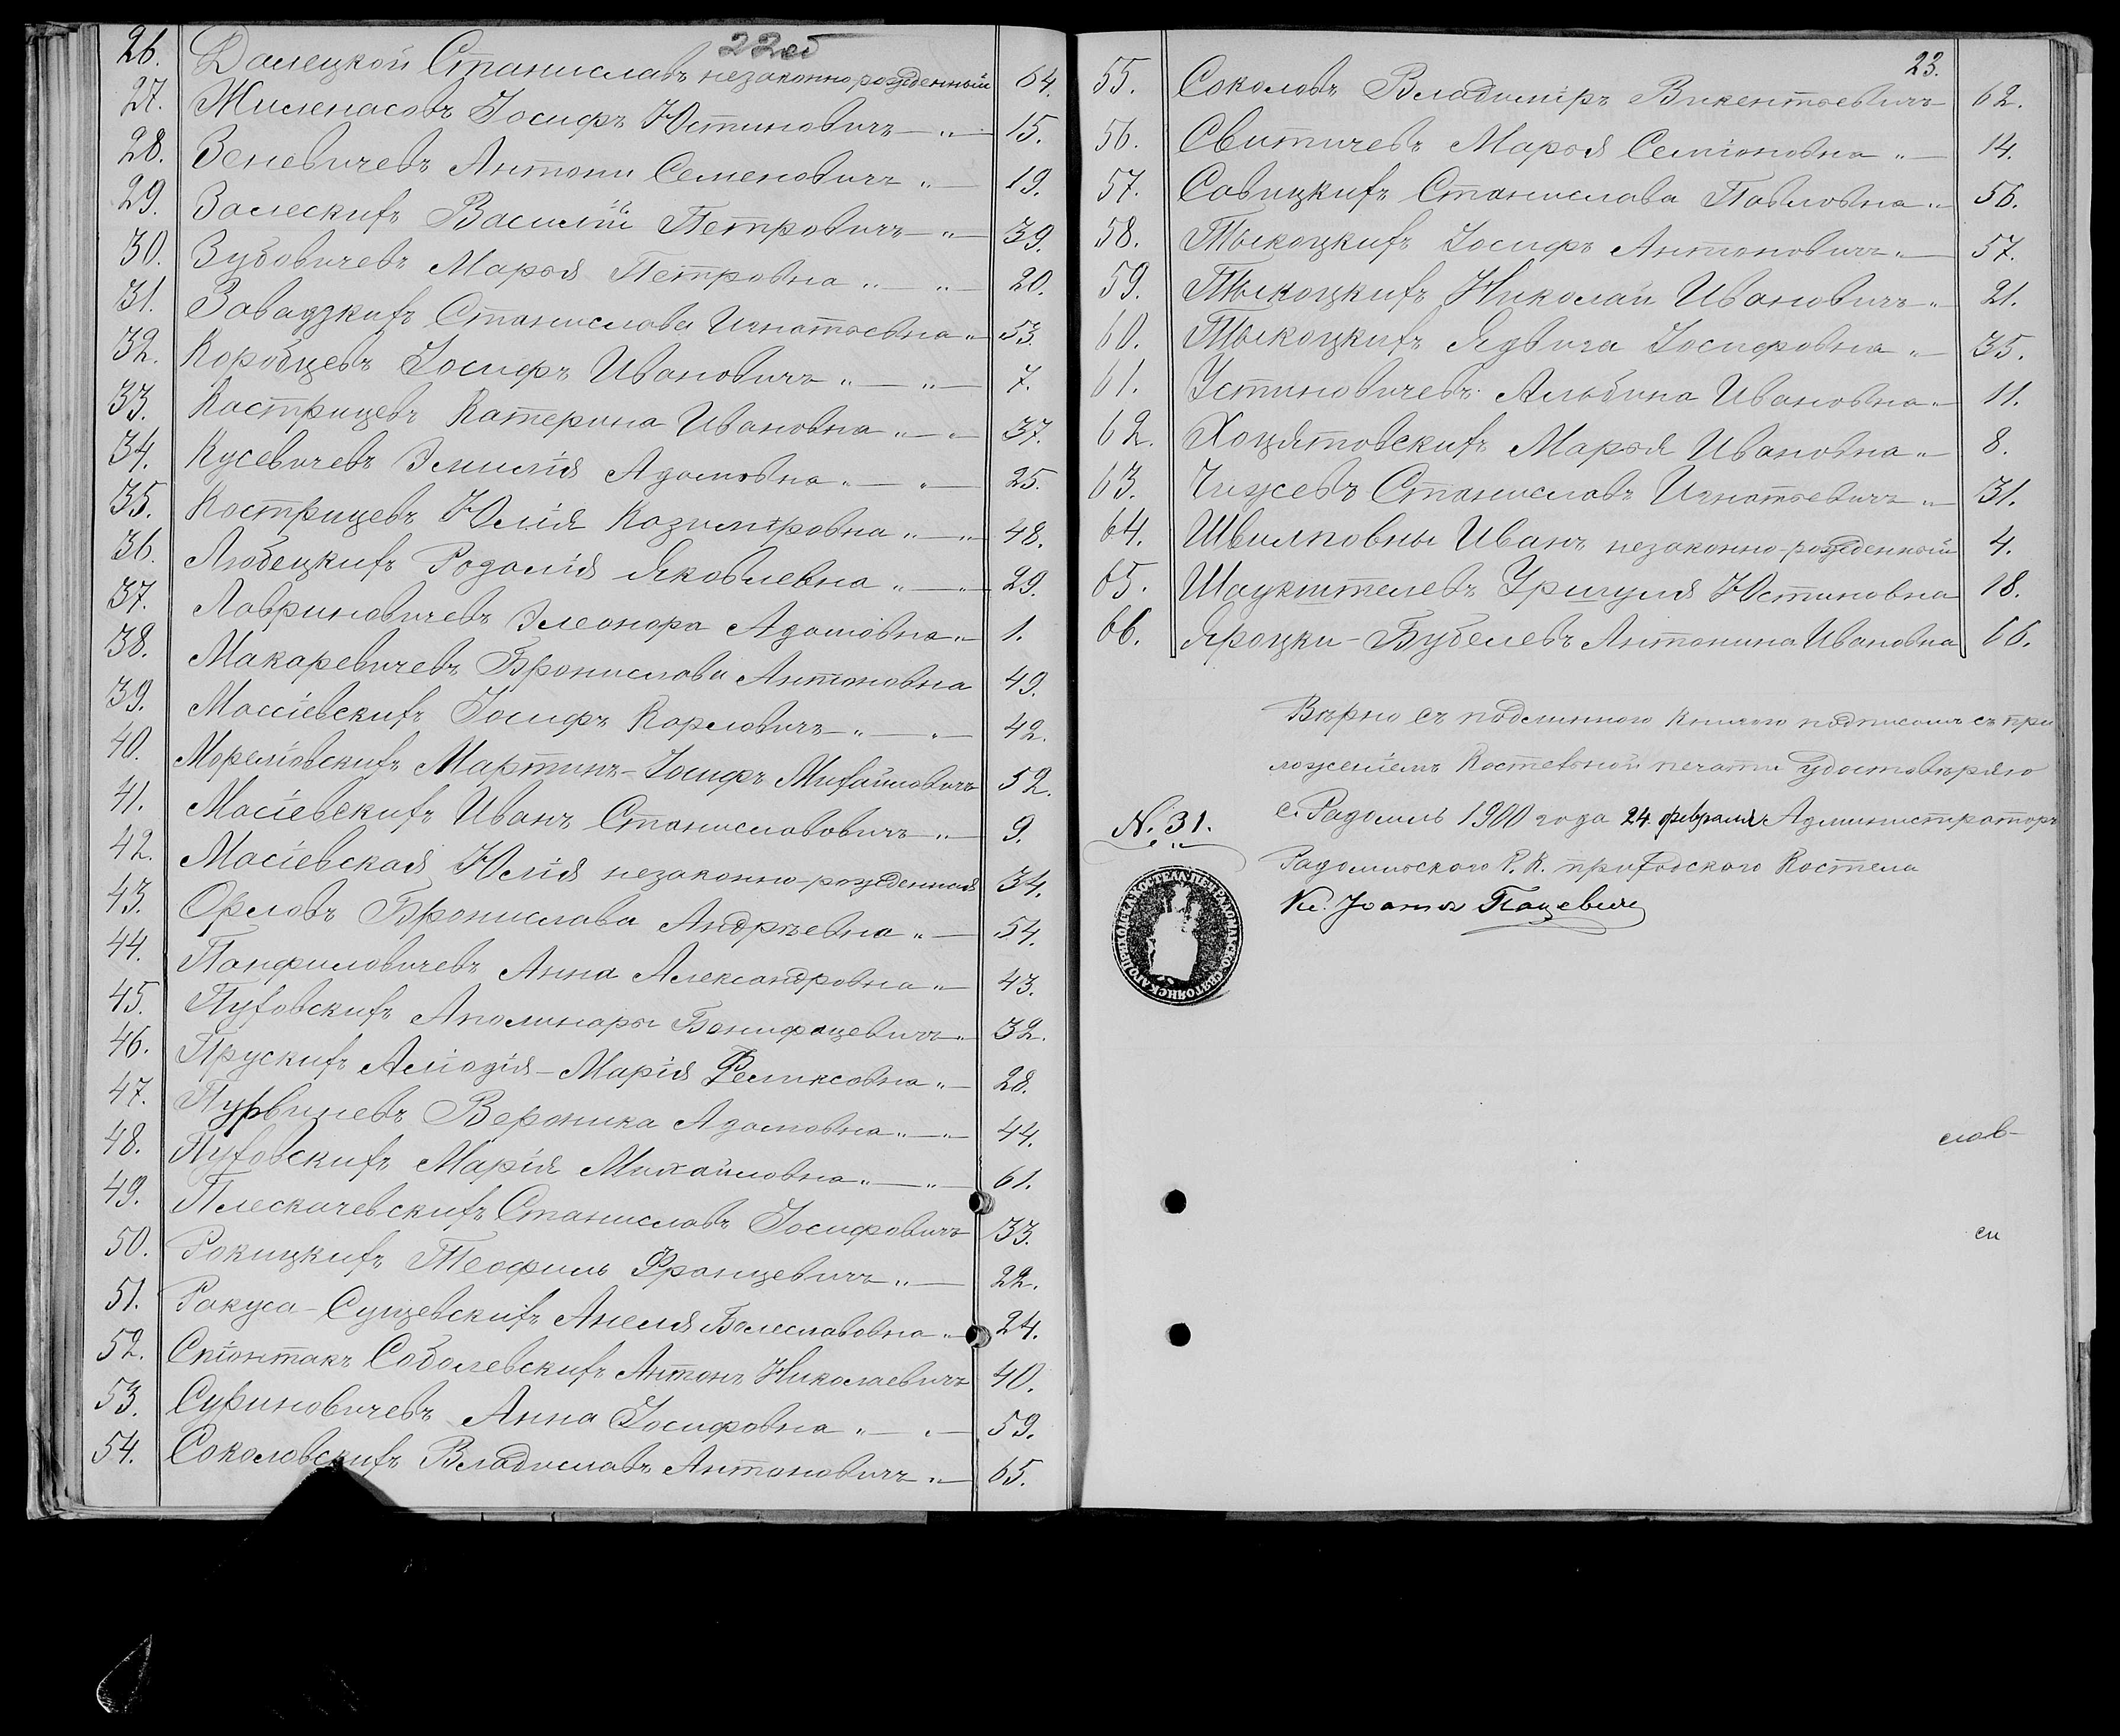 22об
26. Далецкой Станиславъ незаконно-рожденный 64.
27. Жилепасовъ Іосифъ Юстиновичъ —„— 15.
28. Зеневичевъ Антони Семеновичъ „— 19.
29. Залескихъ Василій Петровичъ —„— 39.
30. Зубовичевъ Марья Петровна „— „— 20.
31. Завадзкихъ Станислава Игнатьевна „ 53.
32. Коробцевъ Іосифъ Ивановичъ „— „— 7.
33. Кастрицевъ Катерина Ивановна „— „ 37.
34. Кусевичевъ Эмилія Адамовна „— „— 25.
35. Кострицевъ Юлія Казимировна „— „ 48.
36. Любецкихъ Розалія Яковлевна „— „ 29.
37. Лавриновичевъ Элеонора Адамовна „ 1.
38. Макаревичевъ Бронислава Антоновна 49.
39. Масіевскихъ Іосифъ Карловичъ „— „— 42.
40. Мартинъ-Іосифъ Михайловичъ 52.
41. Масіевскихъ Иванъ Станиславовичъ „— 9.
42. Масіевская Юлія незаконно-рожденная 34.
43. Орловъ Бронислава Андреевна „— 54.
44. Панфиловичевъ Анна Александровна „ 43.
45. Пуховскихъ Аполинары Бонифацевичъ „ 32.
46. Прускихъ Марія Феликсовна „— 28.
47. Пурвиневъ Вероника Адамовна „—„ 44.
48. Пуховскихъ Марія Михайловна „— „— 61.
49. Плескачевскихъ Станиславъ Іосифовичъ 33.
50. Рокицкихъ Теофиль Францевичъ „— 22.
51. Ракуса-Сущевскихъ Анеля Болеславовна „ 24.
52. Спіонтакъ Соболевскихъ Антонъ Николаевичъ 40.
53. Суриновичевъ Анна Іосифовна „— „— 59.
54. Соколовскихъ Владиславъ Антоновичъ „— 65.
23.
55. Соколовъ Владиміръ Викентьевичъ 62.
56. Свитичевъ Марья Семіоновна „— 14.
57. Савицкихъ Станислава Павловна „ 56.
58. Тыкоцкихъ Іосифъ Антоновичъ „— 57.
59. Тыкоцкихъ Николай Ивановичъ „ 21.
60. Тыкоцкихъ Ядвига Іосифовна „ 35.
61. Устиновичевъ Альбина Ивановна „ 11.
62. Хоцятовскихъ Марья Ивановна „— 8.
63. Чижевъ Станиславъ Игнатьевичъ „— 31.
64. Швилповны Иванъ незаконно-рожденный 4.
65. Шаукштелевъ Уршуля Юстиновна 18.
66. Яроцки-Бубелевъ Антонина Ивановна 66.
Вѣрно съ подлинною книгою подписомъ съ при
ложеніемъ Костельной печати удостовѣряю
с. Радомль 1900 года 24 февраля Администраторъ
N. 31.
Радомльского Р. К. приходского Костела
Кс.
слав-
ск